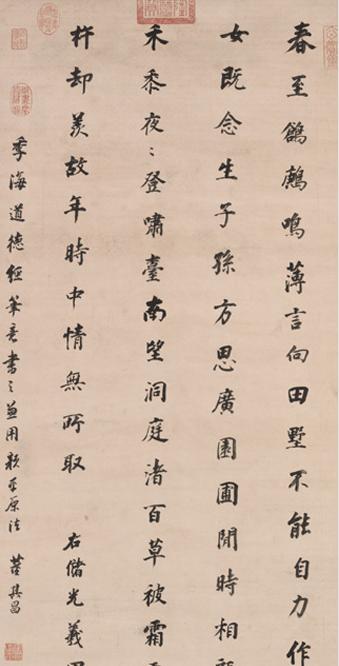 春至鶬鶊鳴薄言向田墅不能自力作
女既念生子孫方思廣園圃閒時相
禾黍夜〻登嘯臺南望洞庭渚百草被霜
杵却羨故年時中情無所取 右儲光羲
季海道德經筆意書之兼用顏平原法 董其昌